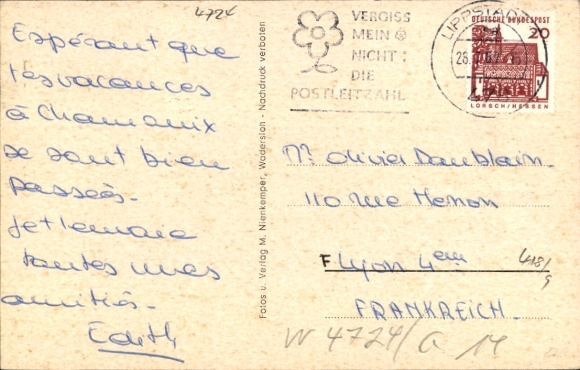 4724
Espérant que
tes vacances
à Chamonix
se sont bien
passées.
Je t'envoie
toutes mes
amitiés.
Edith
Fotos u. Verlag M. Nienkemper, Wadersloh - Nachdruck verboten
VERGISS
MEIN
NICHT:
DIE
POSTLEITZAHL
LIPPSTADT
DEUTSCHE BUNDESPOST
20
LORSCH/HESSEN
Mr Olivier Daublain
110 rue Henon
F Lyon 4em
FRANKREICH.
W 4724/a 14